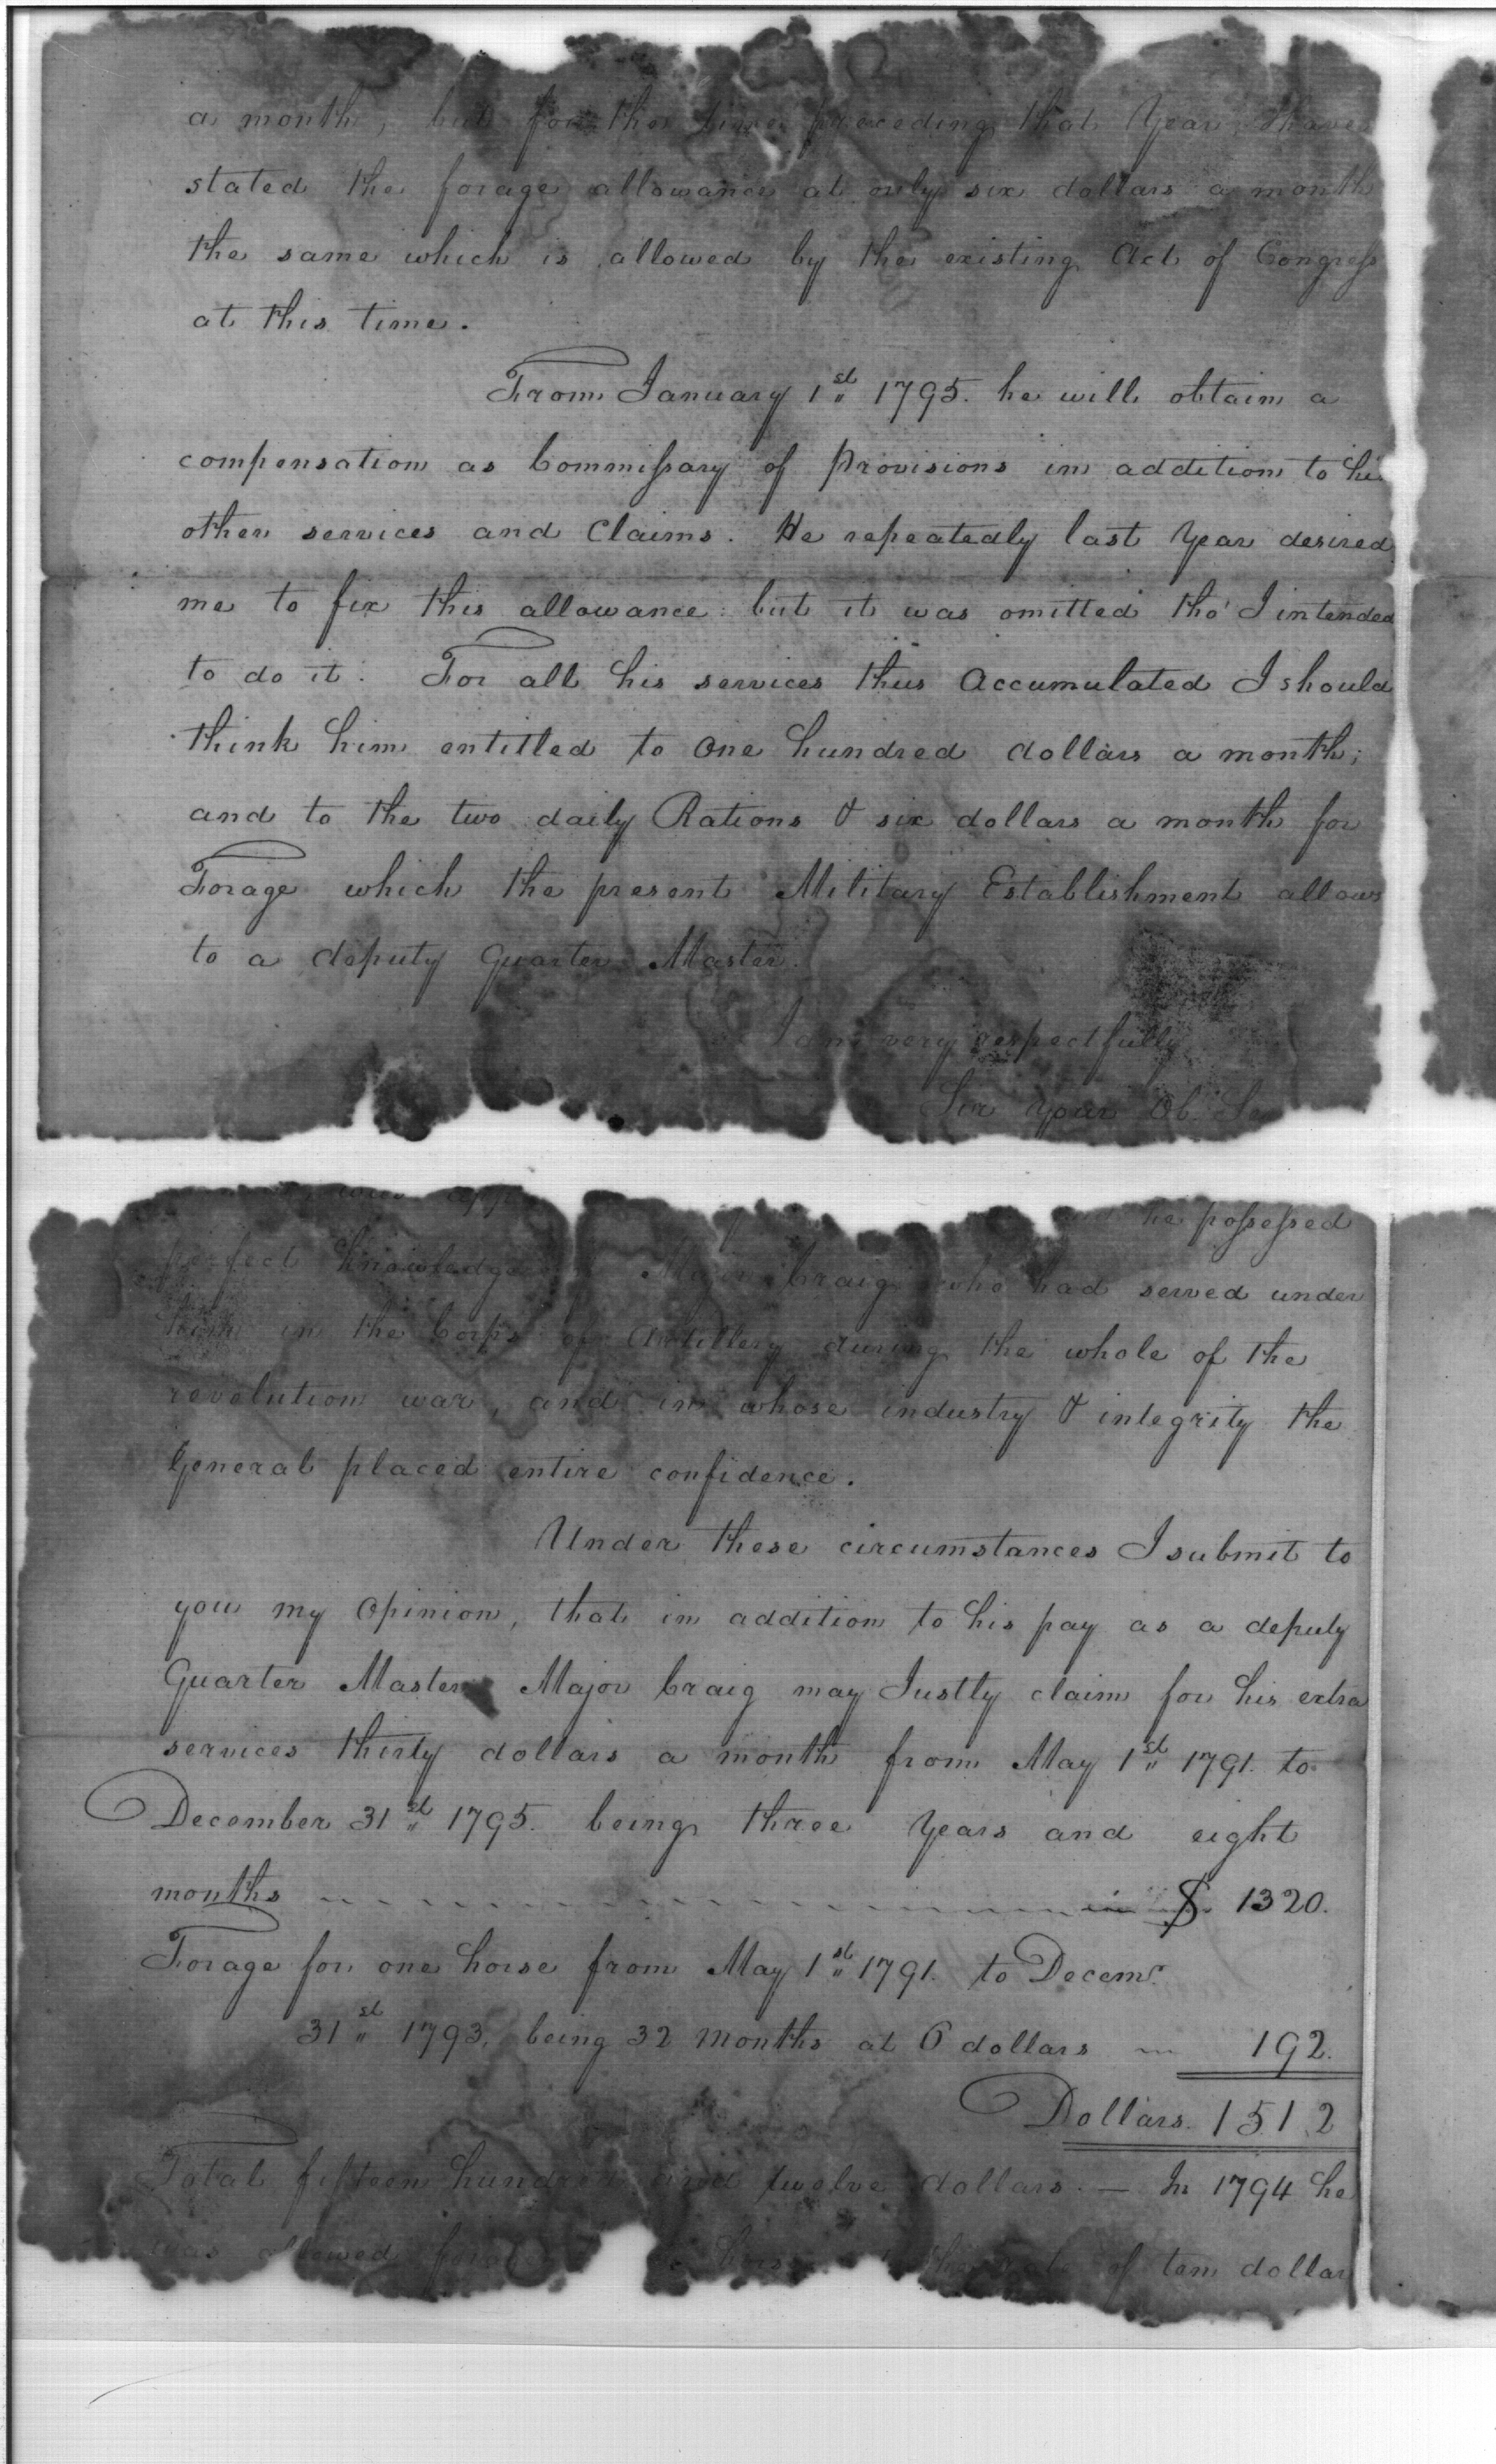 a month, but for the time preceeding that Year, I have
stated the forage allowance at only six dollars a month
the same which is allowed by the existing Act of Congress
at this time.
From January 1st 1795. he will obtain a
compensation as Commissary of Provisions in addition to his
other services and Claims. He repeatedly last Year desired
me to fix this allowance: but it was omitted tho' I intended
to do it. For all his services thus Accumulated I should
think him entitled to One hundred dollars a month;
and to the two daily Rations & six dollars a month for
Forage which the present Military Establishment allows
to a deputy Quarter Master.
I am very respectfully
Sir Your Ob. Se
he possessed
perfect knowledge Major Craig who had served under
him in the Corps of Artillery during the whole of the
revolution war, and in whose industry & integrity the
General placed entire confidence.
Under these circumstances I submit to
you my Opinion, that in addition to his pay as a deputy
Quarter Master Major Craig may Justly claim for his extra
services thirty dollars a month from May 1st 1791. to
December 31st 1795. being three Years and eight
months $ 1320.
Forage for one horse from May 1st 1791. to Decemr.
31st 1793, being 32 Months at 6 dollars 192.
Dollars. 1512
Total fifteen hundred and twelve dollars. — In 1794 he
was allowed of ten dollars